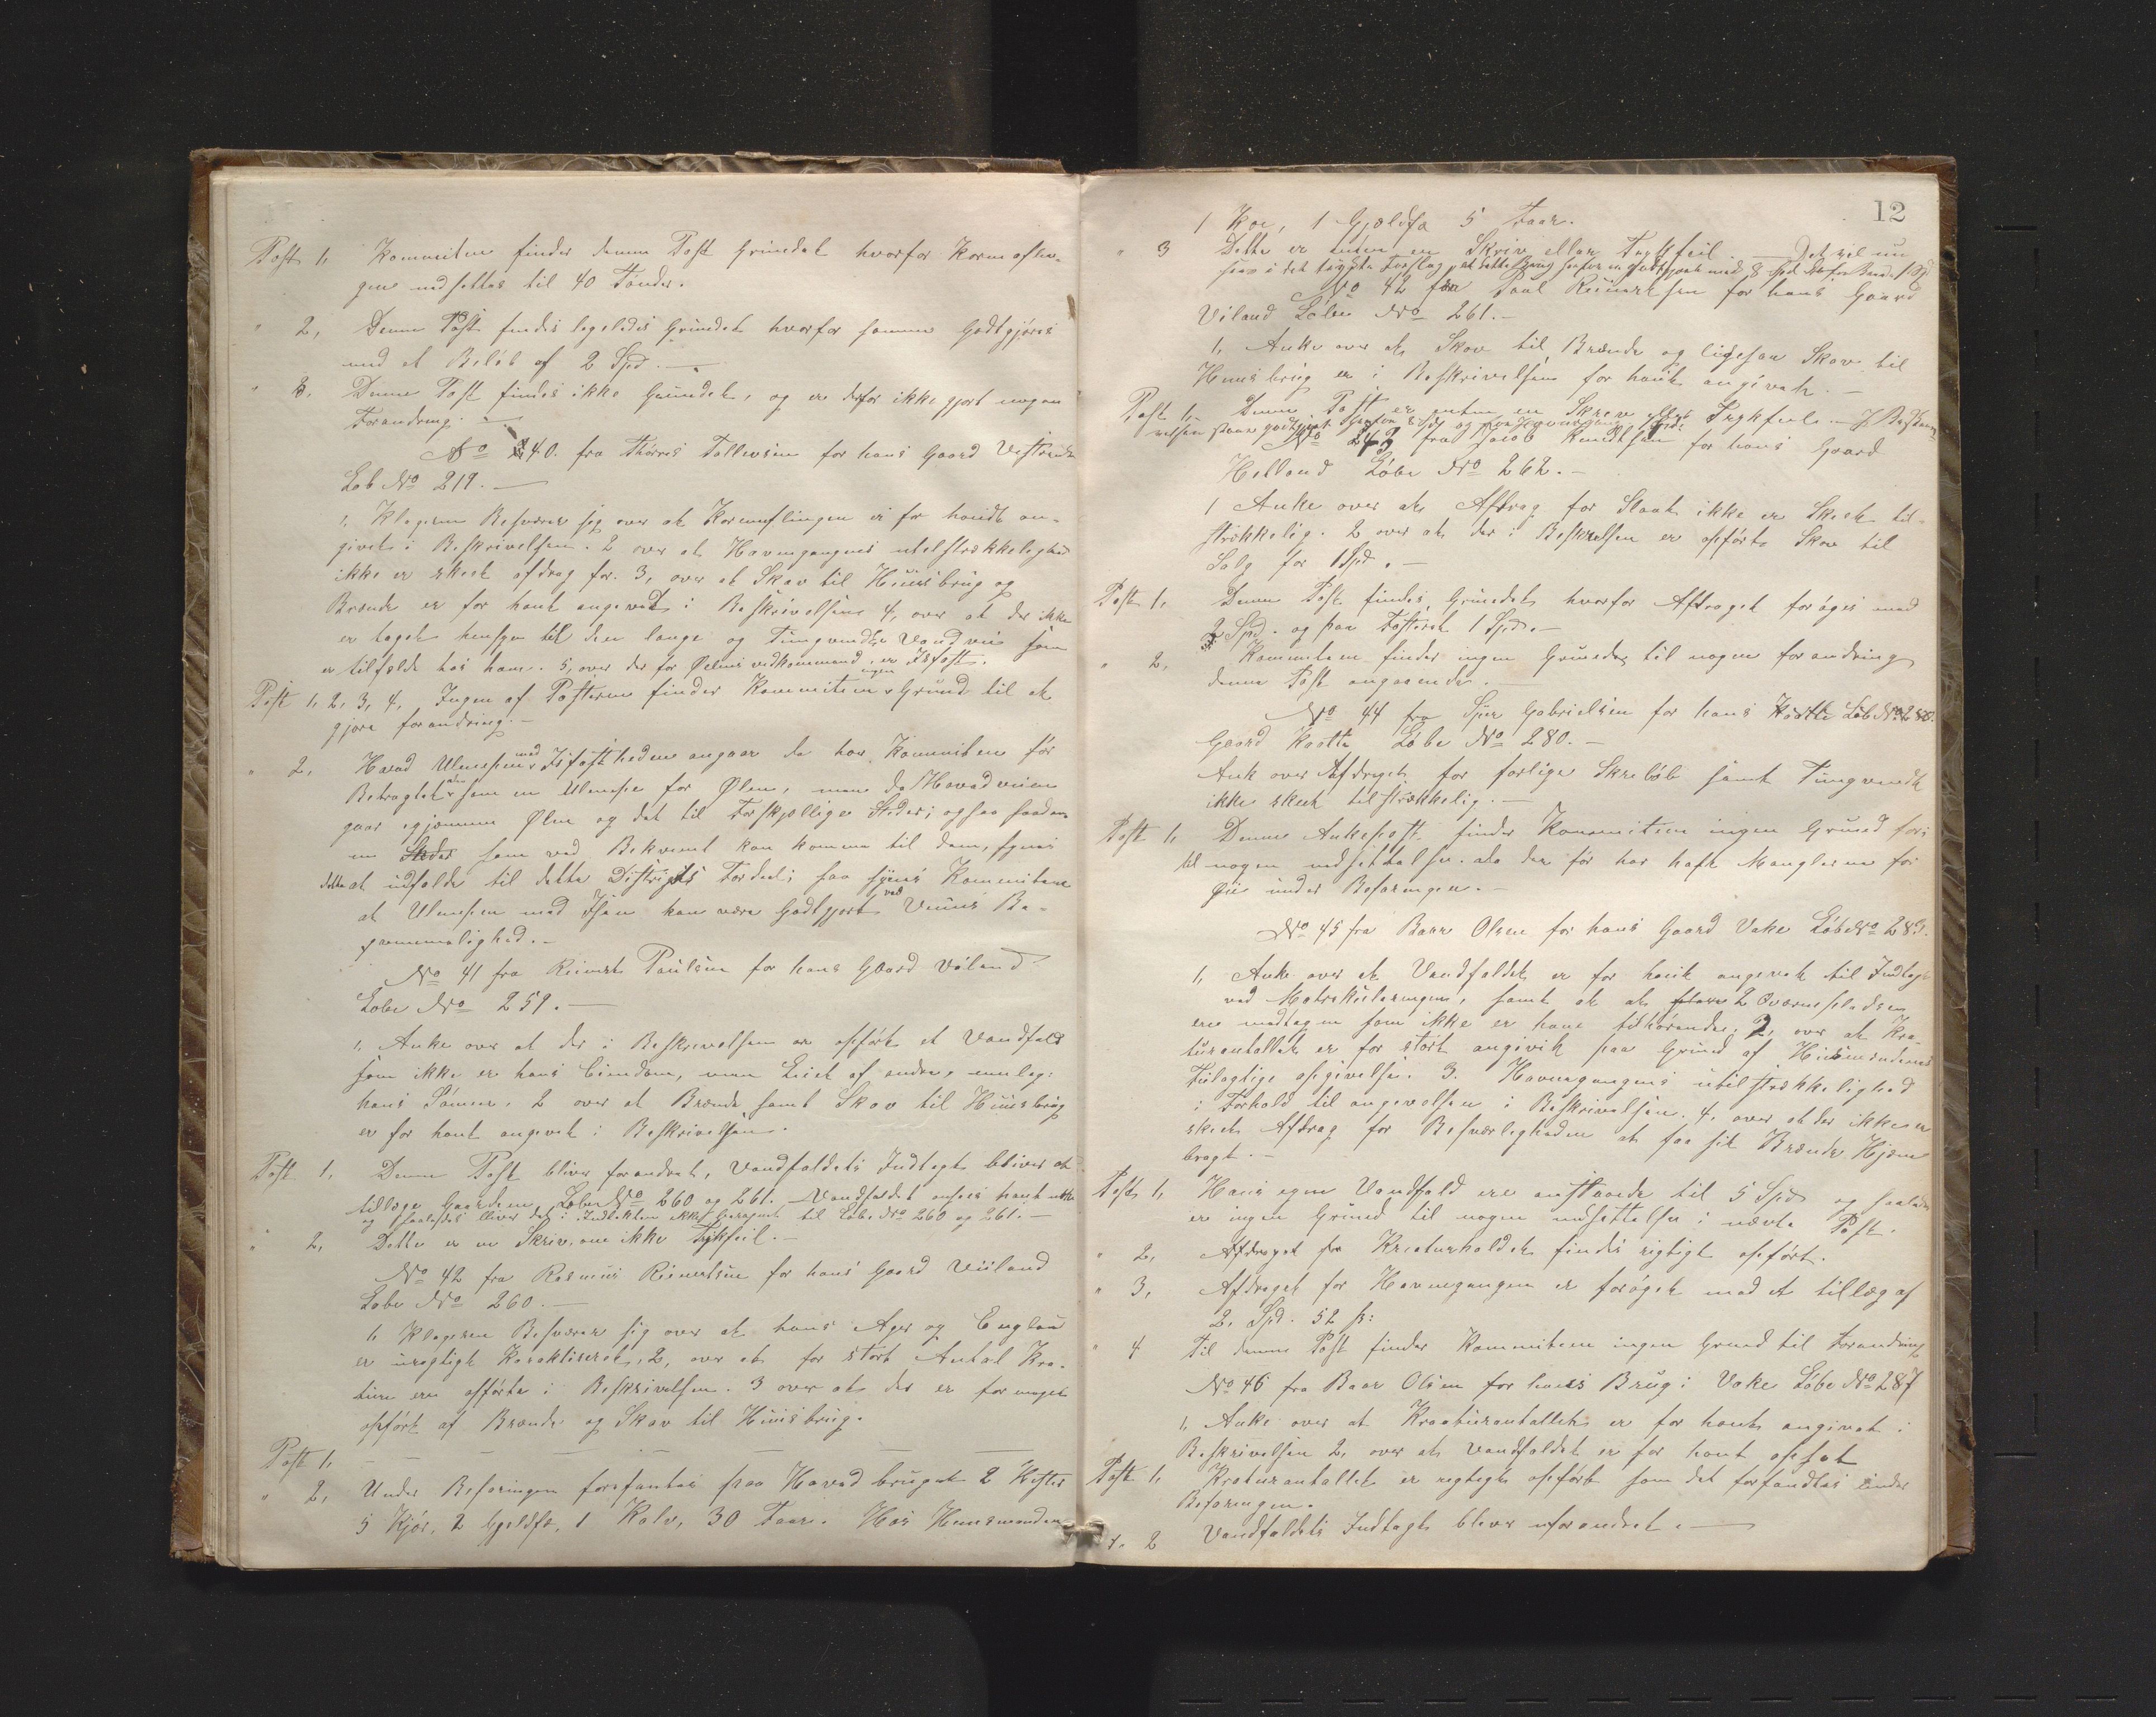 Post 1, Kommiten finder denne Post Grundet hvorfor Kornavlin-
gen nedsettes til 40 Tønder.
" 2, Denne Post findes ligeledes Grundet hvorfor samme Godtgjøres
med et Beløb af 2 Spd. —
" 3. Denne Post findes ikke Grundet, og er derfor ikke gjort nogen
Forandring. —
No 40. fra Thørres Tollevsen for hans Gaard
Løb No 219. —
1, Klageren Besværer sig over at Kornavlingen er for høidt an-
givet i Beskrivelsen. 2 over at Havnegangens utilstrækkelighed
ikke er skeet afdrag for. 3, over at Skov til Huusbrug og
Brænde er for høit angivet i Beskrivelsen 4, over at der ikke
er taget hensyn til den lange og Tungvindte Vandvei som
er tilfælde hos ham. 5, over der for Ølens vedkommende er Isfast.
Post 1, 2, 3, 4, Ingen af Posterne finder Kommiteen ingen Grund til at
gjøre forandring. —
" 2, Hvad Ulempen med Isfastheden angaar da har Kommiten før
Betragtet som en Ulempe for Ølen, men da Hovedveien
gaar igjennem Ølen og det til Forskjellige Steder; ogsaa saadan
som ved Bekvemt kan komme til dem, synes
dette at udfalde til dette Distrigts Fordeel; saa synes Kommiteen
at Ulempen med Isen kan være Godtgjort ved Veiens Be-
kvemmelighed. —
No 41 fra Reinert Paulsen for hans Gaard Viland
Løbe No 259. —
1, Anke over at der i Beskrivelsen er opført et Vandfald
som ikke er hans Eiendom, men Eiet af andre,
hans Sønner. 2 over at Brænde samt Skov til Huusbrug
er for høit angivet i Beskrivelsen.
Post 1, Denne Post bliver forandret, Vandfaldets Indtægt bliver at
tillægge Gaardene Løbe No 260 og 261. Vandfaldet ansees høit nok
og saaledes bliver det i Indtækten ikke beregnet til Løbe No 260 og 261. —
" 2, Dette er en Skriv, om ikke Trykfeil. —
No 42 fra Rasmus Reinertsen for hans Gaard Viiland
Løbe No 260. —
1, Klageren Besværer sig over at hans Ager og England
er urigtigt Karaktiseret, 2, over at for stort Antal Kra-
ture ere opførte i Beskrivelsen. 3 over at der er for meget
opført af Brænde og Skov til Huusbrug.
Post 1, — — — — —
" 2, Under Befaringen forefantes paa Hovedbruget 2 Hester
5 Kjør, 2 Gjeldfæ, 1 Kalv, 30 Faar. Hos Huusmanden
12
1 Koe, 1 Gjeldfæ 5 Faar.
" 3 Dette er enten en Skriv eller Trykfeil. — Det vil nu
sees i det trykte Forslag, at dette Brug
No 42 fra Paul Reinertsen for hans Gaard
Viland Løbe No 261. —
1, Anke over at Skov til Brænde og ligesaa Skov til
Huusbrug er i Beskrivelsen for høit angivet. —
Post 1, Denne Post er enten en Skriv eller Trykfeil. —
No 43 fra Jacob Knudtsen for hans Gaard
Helland Løbe No 262. —
1 Anke over at Afdrag for Slaat ikke er Skeet til-
strækkelig. 2 over at der i Beskrivelsen er opførte Skov til
Salg for 1 Spd. —
Post 1, Denne Post findes Grundet hvorfor Afdraget forøges med
2 Spd. og paa Fosteret 1 Spd. —
" 2, Kommiteen finder ingen Grunde til nogen forandring
denne Post angaaende. —
No 44 fra Sper Gabrielsen for hans Løb No 280.
Gaard Løbe No 280. —
Anke over Afdraget for farlige Skreløb samt Tungvindt
ikke skeet tilstrækkelig. —
Post 1, Denne Ankepost finder Kommiteen ingen Grund for
til nogen nedsættelse. da der før har haft Manglerne for
Øie under Befaringen. —
No 45 fra Baar Olsen for hans Gaard Vake Løbe No 289.
1, Anke over at Vandfaldet er for høit angivet til Indtægt
ved Matrikuleringen, samt at 2 Qværnepladser
ere medtagen som ikke er ham tilhørende; 2, over at Kra-
turantallet er for stort angivet paa Grund af Huusmandens
Feilagtige opgivelse. 3. Havnegangens utilstrækkelighed
i Forhold til angivelsen i Beskrivelsen. 4, over at der ikke er
skeet Afdrag for Besværligheden at faa sit Brænde Hjem-
bragt. —
Post 1, Hans egen Vandfald ere ansaaede til 5 Spd og saaledes
er ingen Grund til nogen nedsættelse i nævnte Post.
" 2, Afdraget fra Kreaturholdet findes rigtigt opført.
" 3, Afdraget for Havnegangen er forøget med et tillæg af
2. Spd. 52 ß:
" 4 Til denne Post finder Kommiteen ingen Grund til Forandring
No 46 fra Baar Olsen for hans Brug i Vake Løbe No 287
1, Anke over at Kreaturantallet er for høit angivet i
Beskrivelsen 2, over at Vandfaldet er for høit opført
Post 1, Kraturantallet er rigtigt opført som det forfandtes under
Befaringen.
" 2 Vandfaldets Indtægt blev uforandret. —